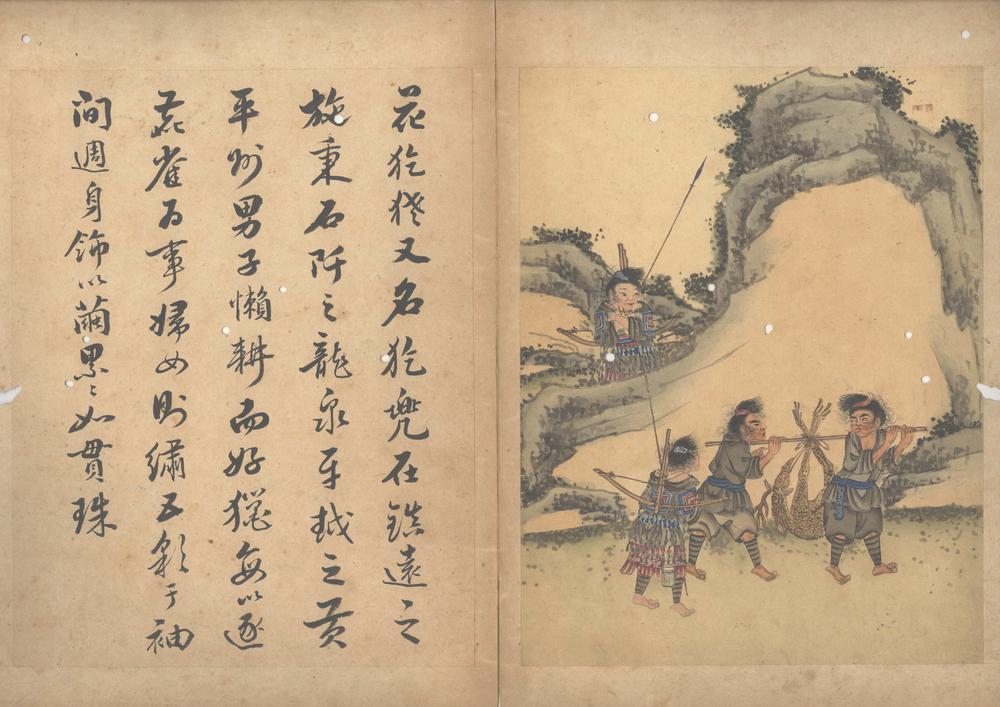 花犵又名犵兠在鎮遠之
施秉石阡之龍泉平越之黄
平州男子懶耕而好獵每以逐
鹿雀為事婦女則繡五彩于袖
間週身飾以繭累〻如貫珠